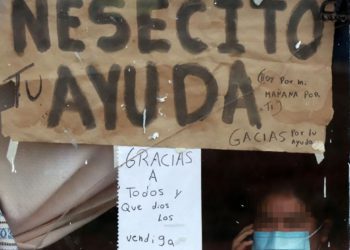 NESECITO
TU AYUDA
(HOY POR MI
MAÑANA POR
TI)
GACIAS POR TU
AYUDA
GRACIAS
A
TODOS Y
QUE DIOS
LOS
vendiga